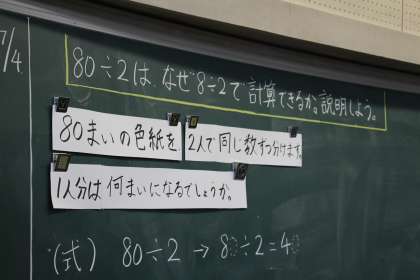 7/4
80÷2は、なぜ8÷2で計算できるか。説明しよう。
80まいの色紙を
2人で同じ数ずつ分けます。
1人分は何まいになるでしょうか。
(式) 80÷2 → 80÷2=40